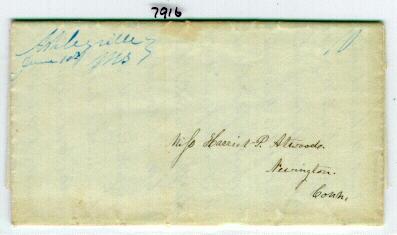 7916
Ashleyville
June 10
Ms
10
Miss Harriet P. Atwood
Newington
Conn,